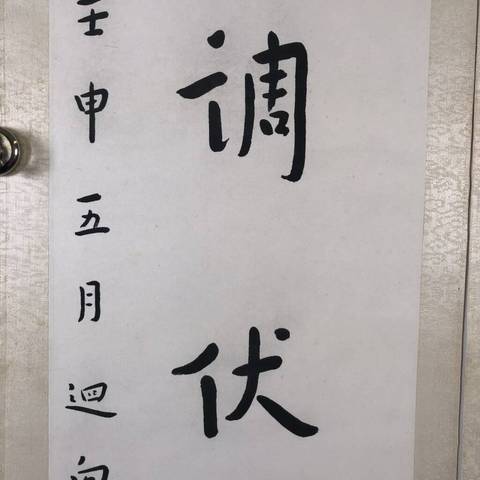 调伏
壬申五月迴向